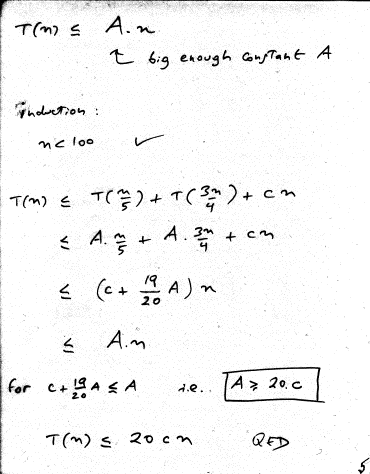 T(n) ≤ A.n
↑ big enough constant A
Induction :
n < 100 ✓
T(n) ≤ T(n/5) + T(3n/4) + cn
≤ A. n/5 + A. 3n/4 + cn
≤ (c + 19/20 A) n
≤ A.n
for c + 19/20 A ≤ A i.e. A ≥ 20.c
T(n) ≤ 20 c n QED
5